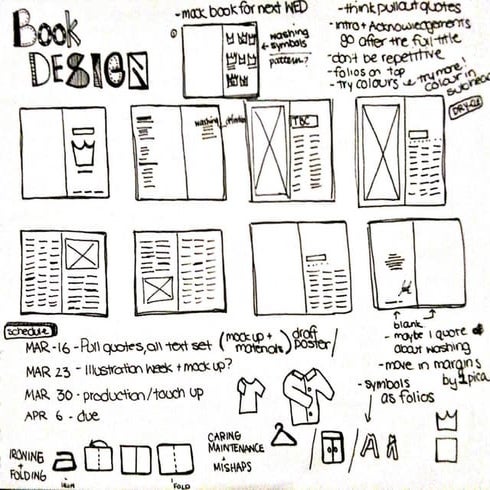 Book
DESIGN
-mock book for next WED
washing
symbols
pattern?
-think pullout quotes
-intro + Acknowledgements
go after the full-title
-don't be repetitive
-folios on top
-try colours
try more!
colour in
washing
TBC
blank
- maybe 1 quote
about washing
-move in margins
by 1 pica
-symbols
as folios
schedule
MAR -16 - Pull quotes, all text set (mockup + materials) draft poster/
MAR 23 - Illustration week + mock up?
MAR 30 - production/touch up
APR 6 - due
IRONING
+
FOLDING
iron
fold
CARING
MAINTENANCE
MISHAPS